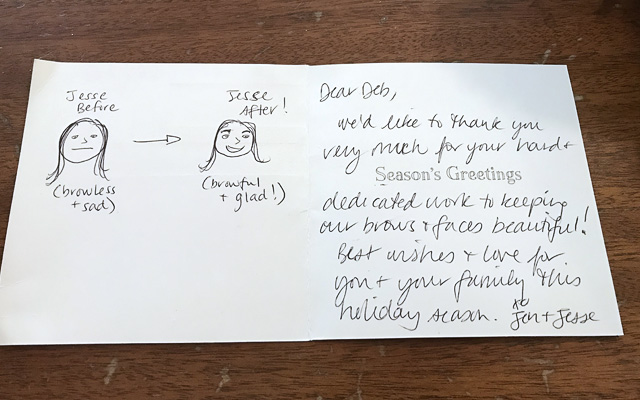 Jesse
Before
Jesse
After!
(browless
+ sad)
(browful
+ glad!)
Dear Deb,
we'd like to thank you
very much for your hard +
Season's Greetings
dedicated work to keeping
our brows + faces beautiful!
Best wishes + love for
you + your family this
holiday season.
xo
Jen + Jesse